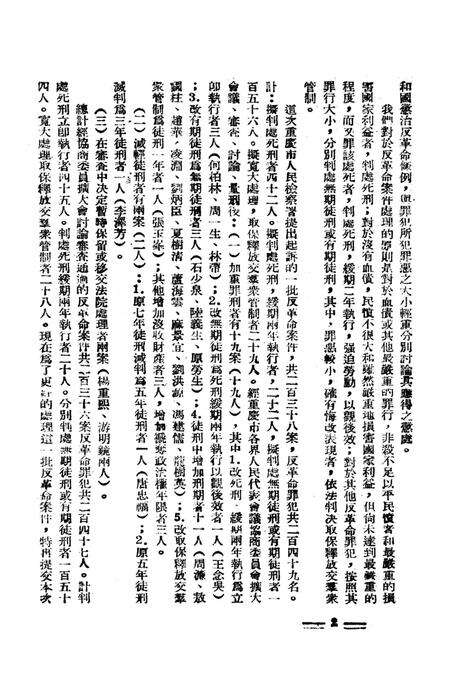 和國懲治反革命條例，與罪犯所犯罪惡之大小輕重分別討論其應得之懲處。
我們對於反革命案件處理的原則是對於血債或其他最嚴重的罪行，非殺不足以平民憤者和最嚴重的損
害國家利益者，判處死刑；對於沒有血債，民憤不很大和雖然嚴重地損害國家利益，但尚未達到最嚴重的
程度，而又罪該處死者，判處死刑，緩期二年執行，强迫勞動，以觀後效；對於其他反革命罪犯，按照其
罪行大小，分別判處無期徒刑或有期徒刑，其中，罪惡較小，確有悔改表現者，依法判決取保釋放交羣衆
管制。
這次重慶市人民檢察署提出起訴的一批反革命案件，共二百三十八案，反革命罪犯共二百四十九名。
計：擬判處死刑者四十二人。擬判處死刑，緩期兩年執行者，二十二人，擬判處無期徒刑或有期徒刑者一
百五十六人。擬寬大處理，取保釋放交羣衆管制者二十九人。經重慶市各界人民代表會議協商委員會擴大
會議、審查、討論、量刑後：（一）加重罪刑者有十九案（十九人），其中1.改死刑、緩期兩年執行爲立
卽執行者三人（何柏林、周一生、林帶）；2.改無期徒刑爲死刑緩期兩年執行以觀後效者一人（王念吳）
；3.改有期徒刑爲無期徒刑者三人（石少泉、陸義生、原勞生）；4.徒刑中增加刑期者十一人（周濂、敖
國柱、趙華，凌淵、劉炳臣、夏樹清、盧海雲、麻景宜、劉洪源、馮建儒、龍樹英）；5.改取保釋放交羣
衆管制爲徒刑一年者一人（張玉峯）；其他增加沒收財產者三人，增加褫奪政治權年限者三人。
（二）減輕徒刑者有兩案（二人）；1.原七年徒刑減判爲五年徒刑者一人（唐忠福）；2.原五年徒刑
減判爲三年徒刑者一人（李潔芳）。
（三）在審查中决定暫時保留或移交法院處理者兩案（楊重熙、游明鏡兩人）。
總計經協商委員擴大會討論審查通過的反革命案件共二百三十六案反革命罪犯共二百四十七人。計判
處死刑立卽執行者四十五人。判處死刑緩期兩年執行者二十人。分別判處無期徒刑或有期徒刑者一百五十
四人。寬大處理取保釋放交羣衆管制者二十八人。現在爲了更好的處理這一批反革命案件，特再提交本次
2